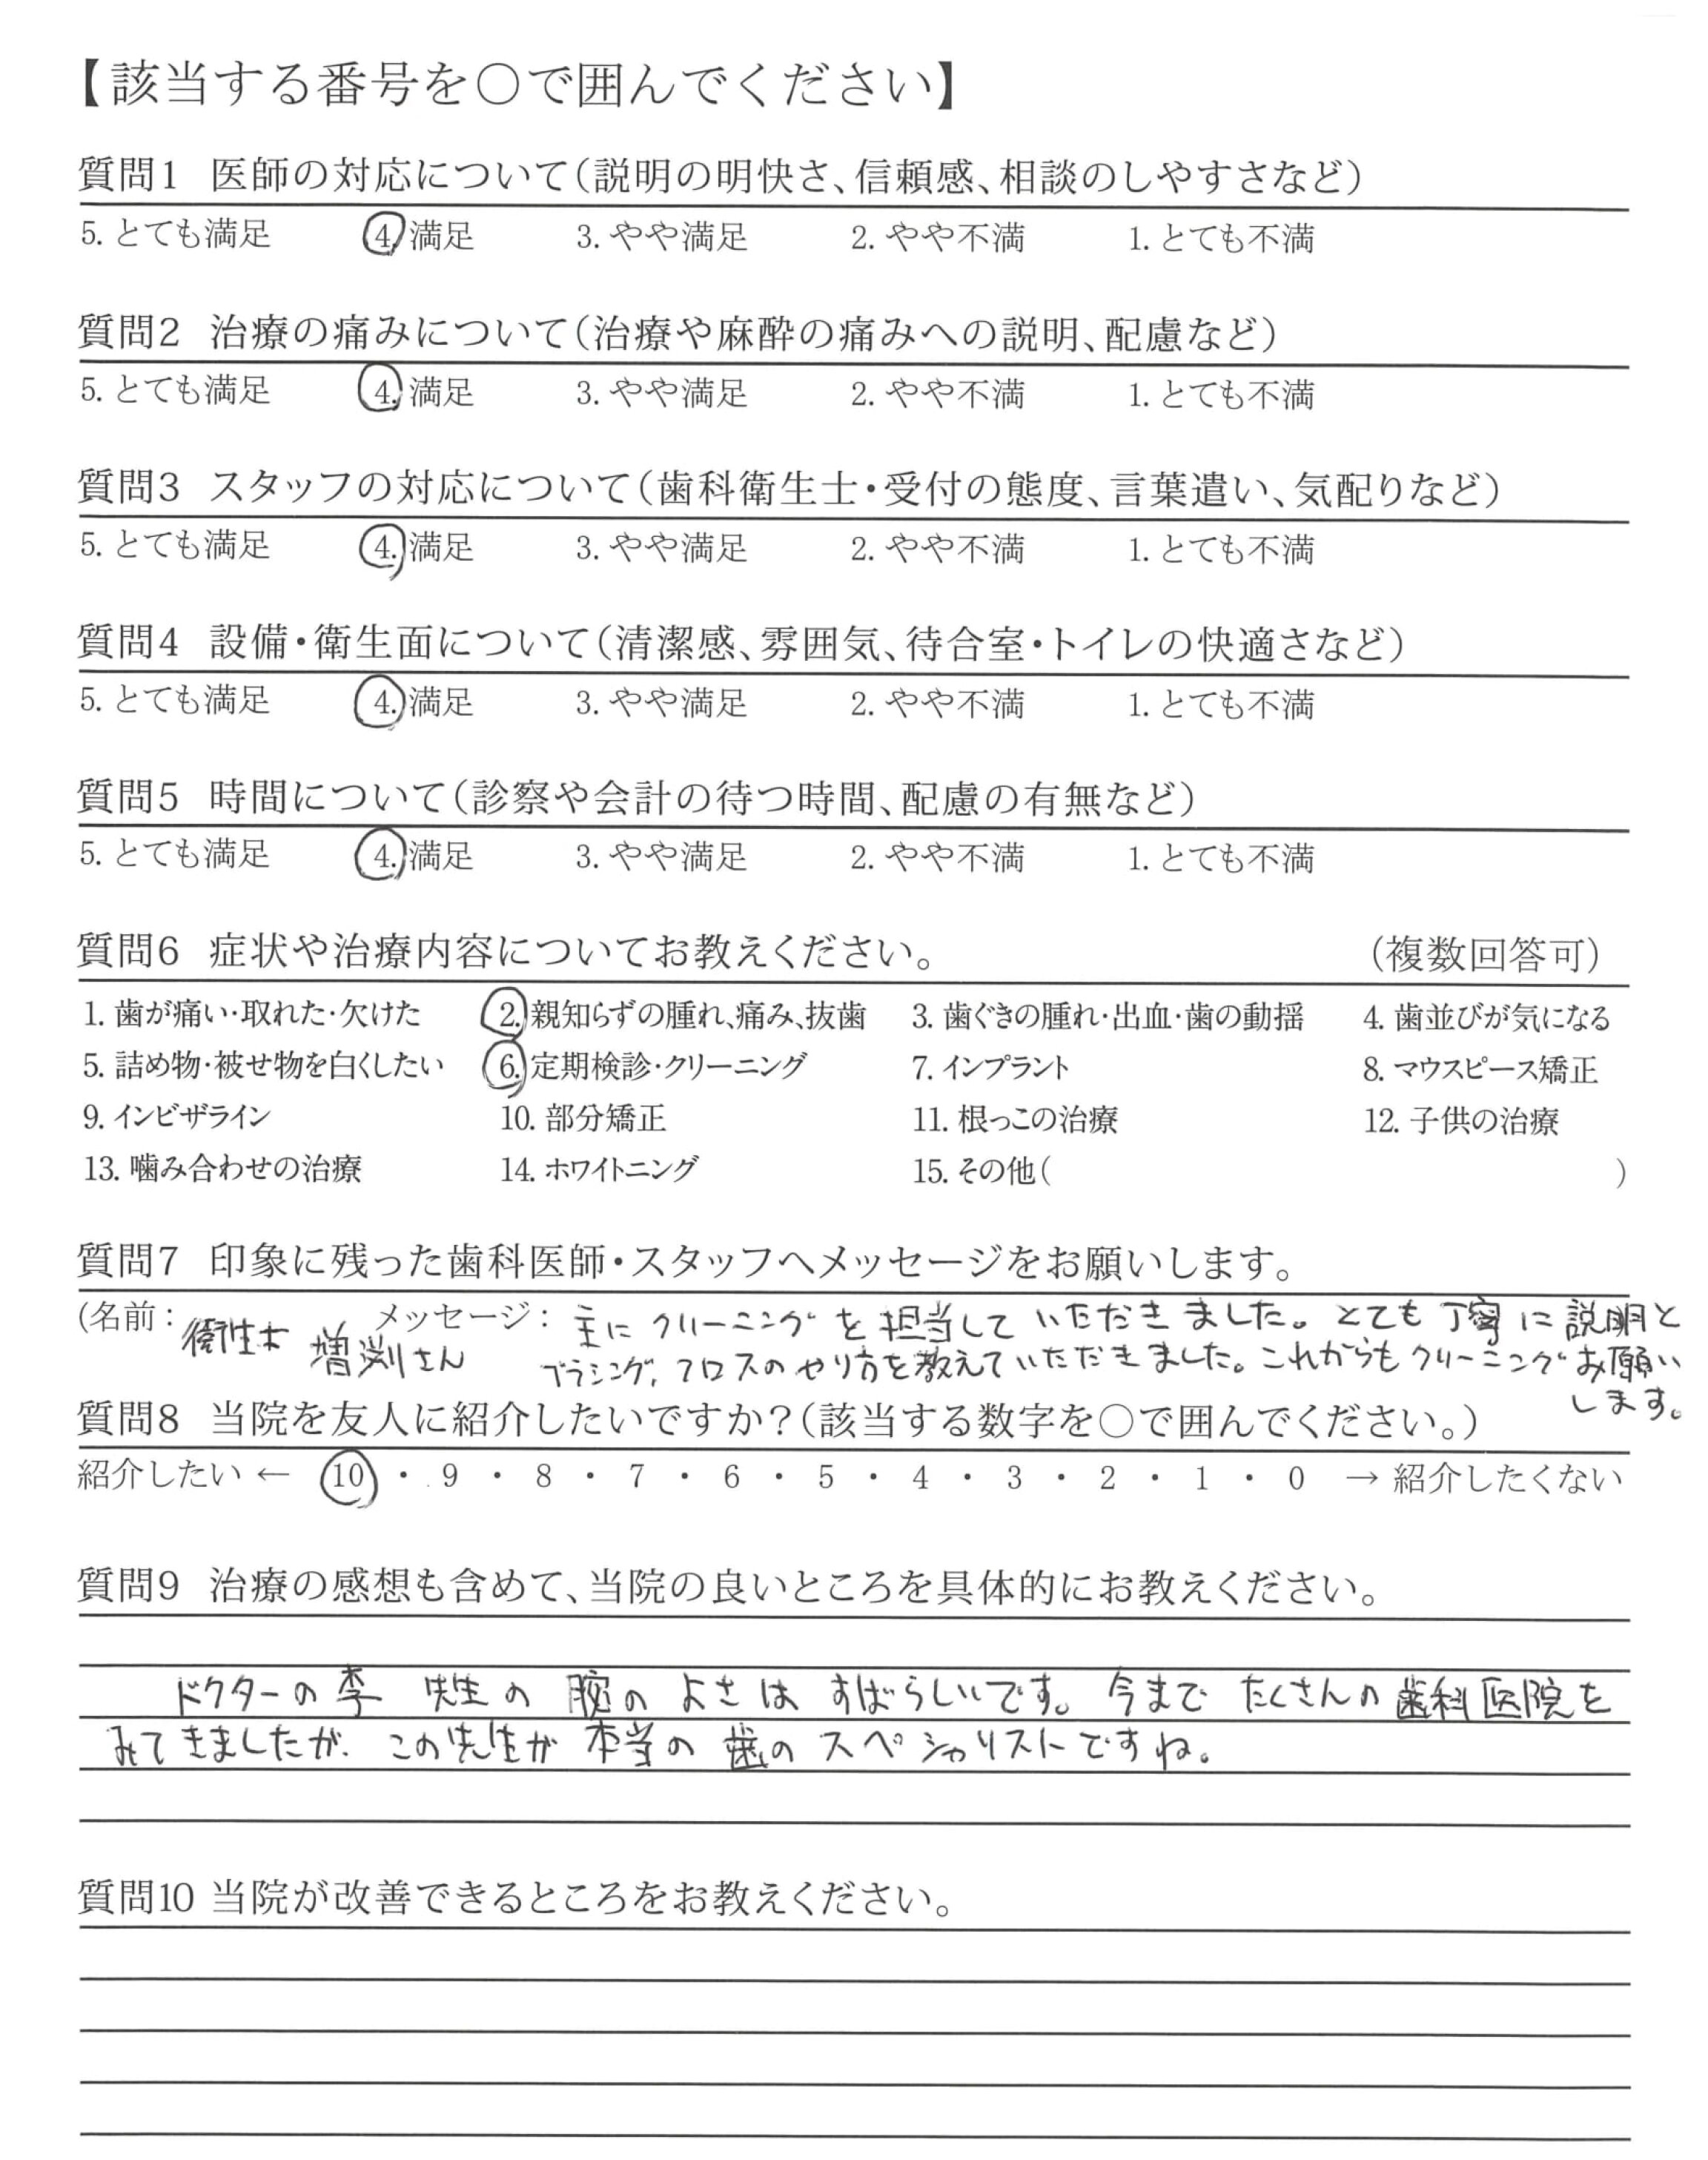 【該当する番号を○で囲んでください】
質問1 医師の対応について(説明の明快さ、信頼感、相談のしやすさなど)
5. とても満足 4. 満足 3. やや満足 2. やや不満 1. とても不満
質問2 治療の痛みについて(治療や麻酔の痛みへの説明、配慮など)
5. とても満足 4. 満足 3. やや満足 2. やや不満 1. とても不満
質問3 スタッフの対応について(歯科衛生士・受付の態度、言葉遣い、気配りなど)
5. とても満足 4. 満足 3. やや満足 2. やや不満 1. とても不満
質問4 設備・衛生面について(清潔感、雰囲気、待合室・トイレの快適さなど)
5. とても満足 4. 満足 3. やや満足 2. やや不満 1. とても不満
質問5 時間について(診察や会計の待つ時間、配慮の有無など)
5. とても満足 4. 満足 3. やや満足 2. やや不満 1. とても不満
質問6 症状や治療内容についてお教えください。 (複数回答可)
1. 歯が痛い・取れた・欠けた 2. 親知らずの腫れ、痛み、抜歯 3. 歯ぐきの腫れ・出血・歯の動揺 4. 歯並びが気になる
5. 詰め物・被せ物を白くしたい 6. 定期検診・クリーニング 7. インプラント 8. マウスピース矯正
9. インビザライン 10. 部分矯正 11. 根っこの治療 12. 子供の治療
13. 噛み合わせの治療 14. ホワイトニング 15. その他( )
質問7 印象に残った歯科医師・スタッフへメッセージをお願いします。
(名前: 衛生士 増渕さん メッセージ: 主にクリーニングを担当していただきました。とても丁寧に説明と
ブラシング、フロスのやり方を教えていただきました。これからもクリーニングお願い
します。
質問8 当院を友人に紹介したいですか?(該当する数字を○で囲んでください。)
紹介したい ← 10 ・ 9 ・ 8 ・ 7 ・ 6 ・ 5 ・ 4 ・ 3 ・ 2 ・ 1 ・ 0 → 紹介したくない
質問9 治療の感想も含めて、当院の良いところを具体的にお教えください。
ドクターの李 先生の腕のよさはすばらしいです。今までたくさんの歯科医院を
みてきましたが、この先生が本当の歯のスペシャリストですね。
質問10 当院が改善できるところをお教えください。